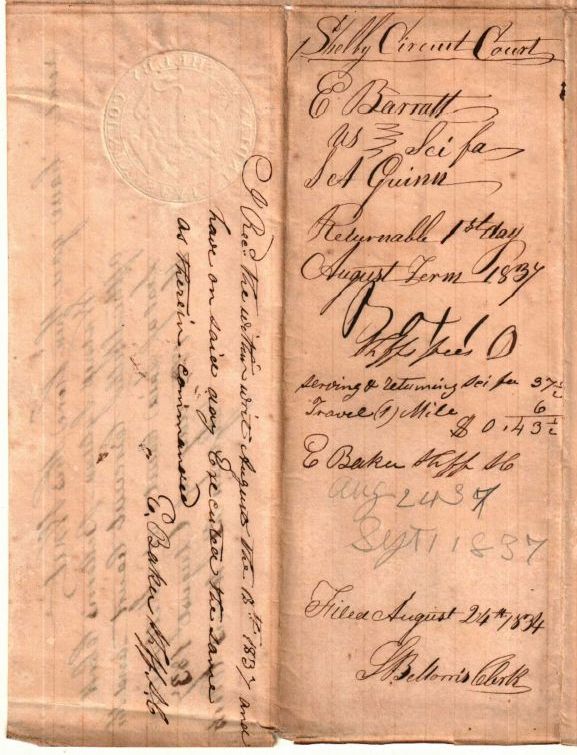 Shelby Circuit Court
E Barratt
vs Sci fa
S & A Guinn
Returnable 1st day
August Term 1837
Shffs fees
Serving & returning Sci fa 37 1/2
Travel (1) Mile 6
$ 0.43 1/2
E Baker Shff SC
Aug 24 37
Sept 1 1837
Filed August 24th 1837
Clerk
I Recd. the within writ August the 15th 1837 and
have on said day Executed the same
as therein commanded
E. Baker Shff. SC